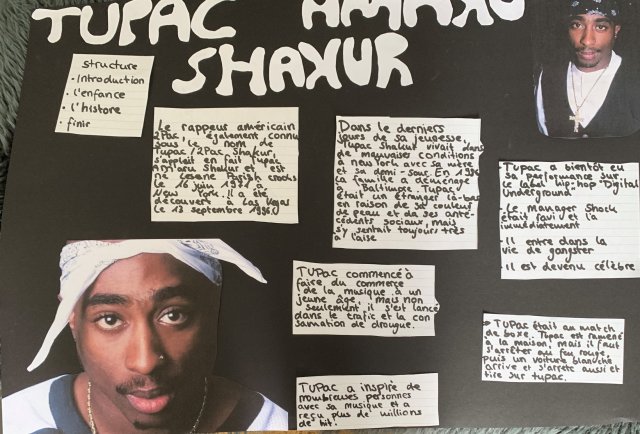 TUPAC AMARU
SHAKUR
structure
• Introduction
• l'enfance
• l'histore
• finir
Le rappeur américain
2Pac, également connu
sous le nom de
Tupac/2Pac Shakur,
s'applait en fait Tupac
Amaru Shakur et est
né Lesane Parish Crooks
le 16 juin 1971 à
New York. Il a été
découvert à Las Vegas
le 13 septembre 1996.
Dans le derniers
jours de sa jeunesse,
Tupac Shakur vivait dans
de mauvaises conditions
à New York avec sa mère
et sa demi-sœur. En 198
la famille a déménagé
à Baltimore. Tupac
était un étranger là-bas
en raison de ses couleur
de peau et da ses anté-
cédents sociaux, mais
s'y sentait toujours très
à l'aise
Tupac a bientôt eu
sa performance sur
le label hip-hop Digital
Underground
• Le Manager Shock
était ravi et l'a
immédiatement
• Il entre dans la
vie de gangster
• Il est devenu célèbre
Tupac commencé à
faire du commerce
de la musique à un
jeune âge, mais non
seulement, il s'est lancé
dans le trafic et la con
samation de drougue.
Tupac a inspiré de
nombreuses personnes
avec sa musique et a
reçu plus de millions
de hit.
Tupac était au match
de boxe. Tupac est ramené
à la maison, mais il faut
s'arrêter au feu rouge,
puis un voiture blanche
arrive et s'arrete aussi et
tire sur tupac.